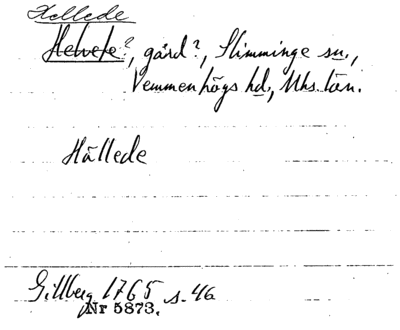 Hellede
Helvete?, gård?, Slimminge sn.,
Vemmenhögs hd, Mhs. län.
Hällede
Gillberg 1765 s. 46
Nr 5873.